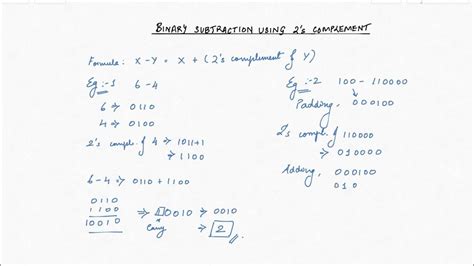 BINARY SUBTRACTION USING 2's COMPLEMENT
Formula: X-Y = X + (2's complement of Y)
Eg:-1 6-4
6 ⇒ 0110
4 ⇒ 0100
2's compl. of 4 ⇒ 1011+1
⇒ 1100
6-4 ⇒ 0110 + 1100
0110
1100
10010
⇒ 10010 ⇒ 0010
Carry
⇒ 2
Eg:-2 100 - 110000
Padding, 000100
2's compl. of 110000
⇒ 010000
Adding, 000100
010